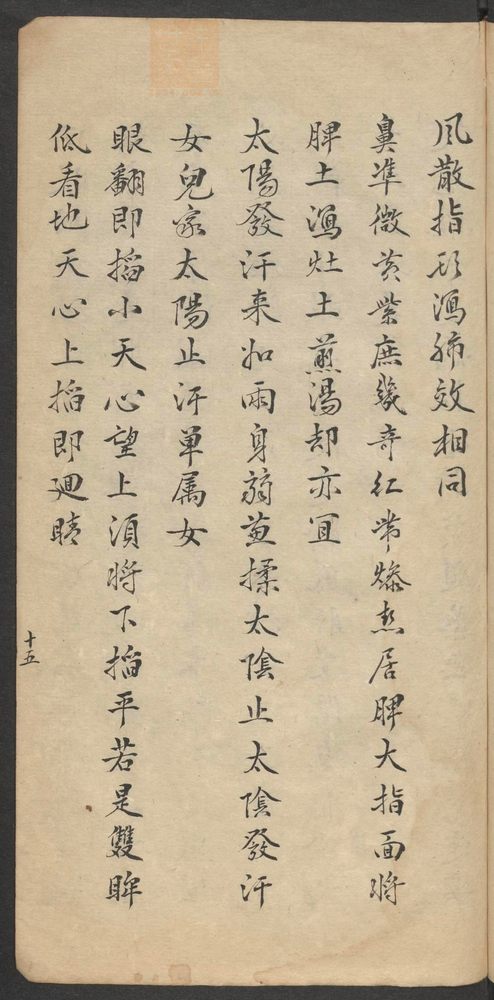 風散指頂瀉肺效相同
鼻準微黃紫庶幾奇紅帶燥热居脾大指面將
脾土瀉灶土煎湯却亦宜
太陽發汗来如雨身弱兼揉太陰止太陰發汗
女兒家太陽止汗单属女
眼翻即掐小天心望上湏將下掐平若是雙眸
低看地天心上掐即廻睛
十五